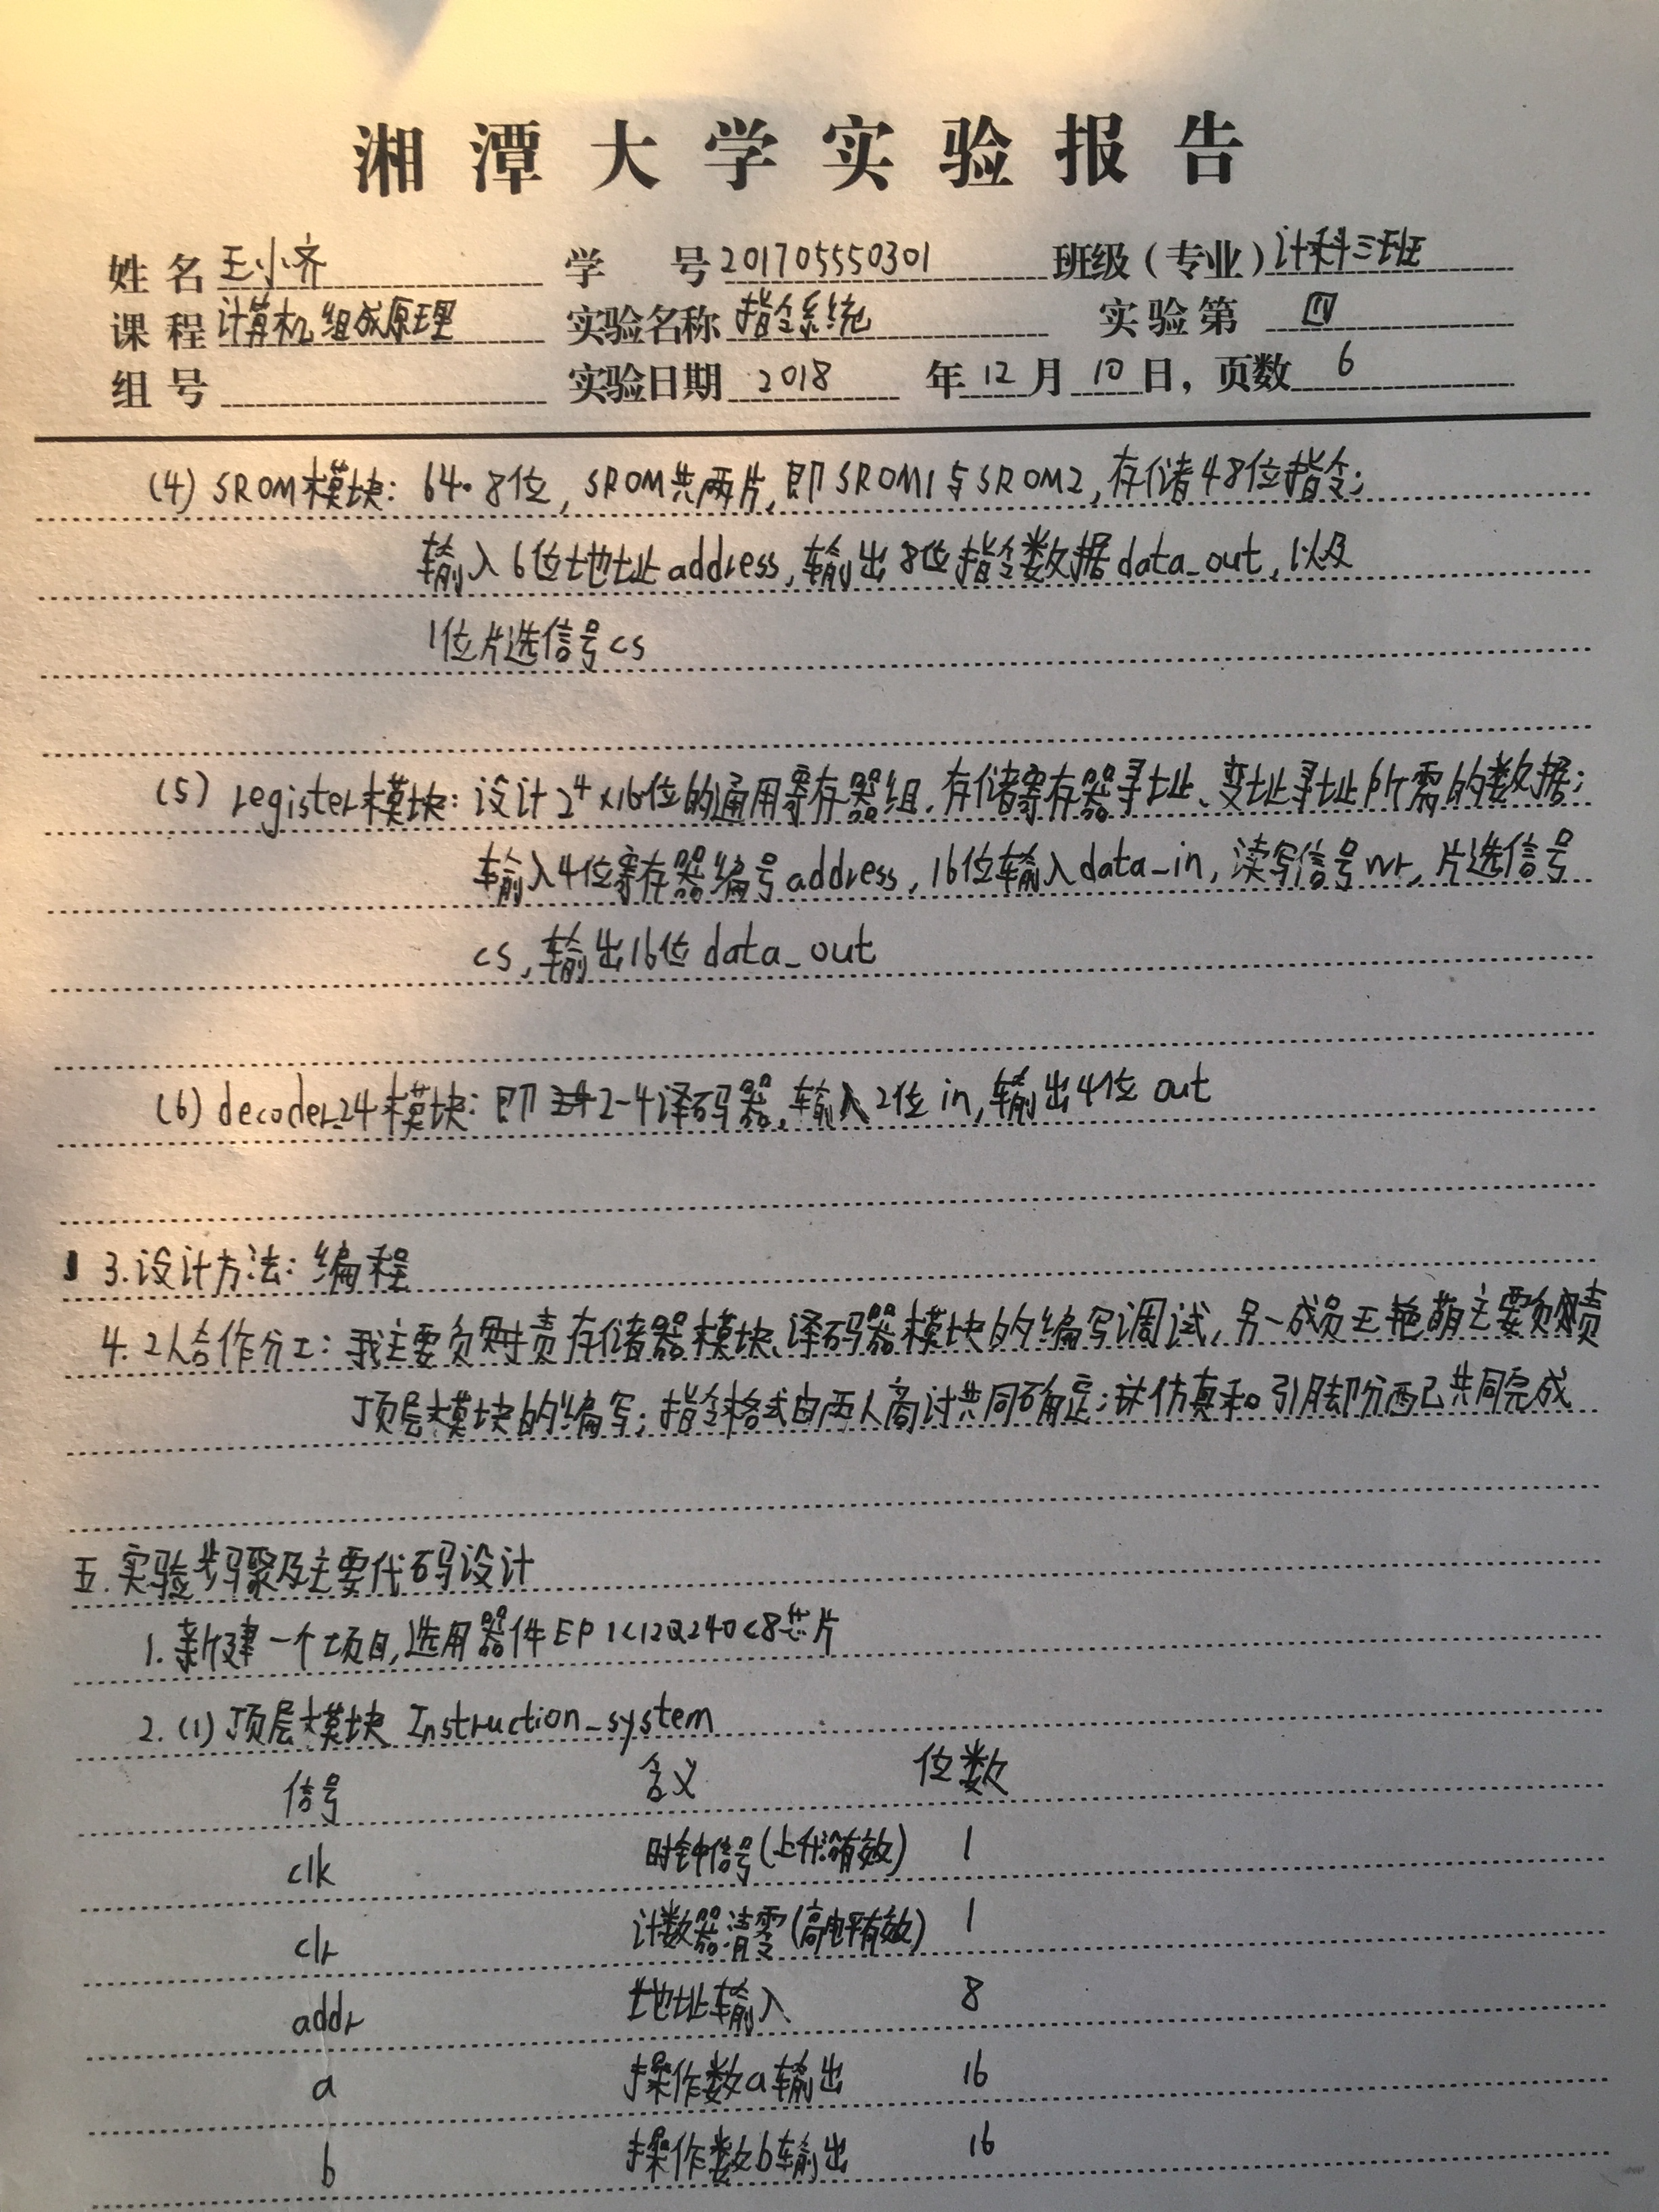 湘潭大学实验报告
姓名 王小齐 学号 201705550301 班级(专业) 计科三班
课程 计算机组成原理 实验名称 指令系统 实验第 四
组号 实验日期 2018 年 12 月 10 日, 页数 6
(4) SROM模块: 64·8位, SROM共两片, 即SROM1与SROM2, 存储48位指令;
输入6位地址address, 输出8位指令数据data_out, 以及
1位片选信号cs
(5) register模块: 设计2⁴×16位的通用寄存器组, 存储寄存器寻址、变址寻址所需的数据;
输入4位寄存器编号address, 16位输入data_in, 读写信号wr, 片选信号
cs, 输出16位data_out
(6) decoder24模块: 即2-4译码器, 输入2位in, 输出4位out
3.设计方法: 编程
4. 2人合作分工: 我主要负责存储器模块、译码器模块的编写调试, 另一成员王艳萌主要负责
顶层模块的编写; 指令格式由两人商讨共同确定; 仿真和引脚分配已共同完成
五.实验步骤及主要代码设计
1.新建一个项目,选用器件EP1C12Q240C8芯片
2.(1)顶层模块 Instruction_system
信号 含义 位数
clk 时钟信号(上升沿有效) 1
clr 计数器清零(高电平有效) 1
addr 地址输入 8
a 操作数a输出 16
b 操作数b输出 16